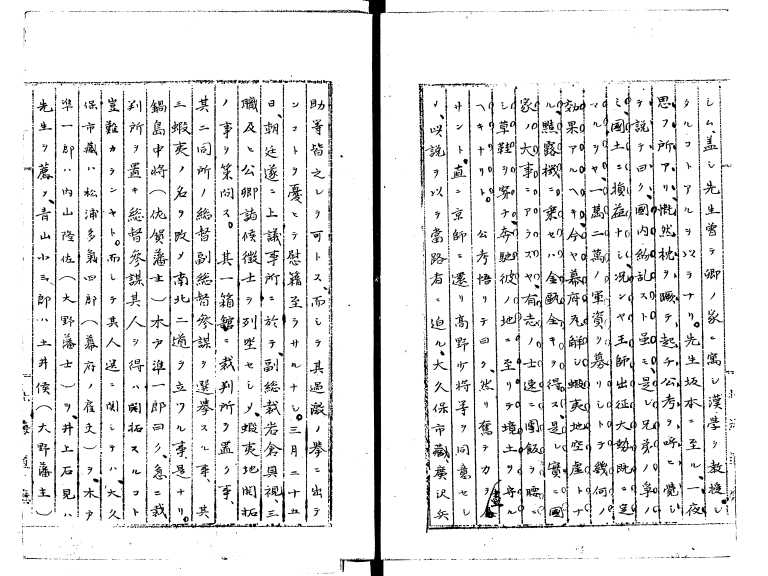 シム、蓋シ先生曾テ卿ノ家ニ寓シ漢學ヲ教授シ
タルコトアルヲ以テナリ。先生坂本ニ至ル、一夜
思フ所アリ、慨然枕ヲ蹴テ起チ公考ヲ呼ヒ覺シ
テ説テ曰ク國内紛乱スト虽ニ是レ兄弟ノ阜ノ
ミ國土ニ損益ナシ、况ンヤ王師出征大勢既ニ定
マルヲヤ、一萬二萬ノ軍資ヲ募リシトテ幾何ノ
効果アルヘキ、今ヤ幕府瓦解シ蝦夷地空虚トナ
ル、黠露機ニ乗セハ金甌全キヲ得ス、是レ實ニ國
家ノ大事ニアラスヤ、有志ノ士速ニ團飯ヲ腰ニ
シ草鞋ヲ穿チ奔馳彼ノ地ニ至リテ境土ヲ守ル
ヘキナリト。公考悟リテ曰ク、然リ奮テカヲ盡
サント、直ニ京師ニ還リ高野少将等ヲ同意セシ
メ、以説ヲ以テ當路者ニ迫ル、大久保市藏廣沢兵
助等皆之レヲ可トス、而シテ其過激ノ擧ニ出テ
ンコトヲ憂ヒテ慰藉至ラサルナシ。三月二十五
日、朝廷遂ニ上議事所ニ於テ副総裁岩倉具視、三
職及ヒ公卿諸侯徴士ヲ列坐セシメ、蝦夷地開拓
ノ事ヲ策問ス。其一箱館ニ裁判所ヲ置ク事、
其二同所ノ総督副総督參謀ヲ選挙スル事、其
三蝦夷ノ名ヲ改メ南北二道ヲ立ツル事是ナリ。
鍋島中将(佐賀藩士)木戸準一郎曰ク、急ニ裁
判所ヲ置キ総督參謀其人ヲ得ハ開拓スルコト
豈難カランヤト。而シテ其人選ニ関シテハ大久
保市藏ハ松浦多氣四郎(幕府ノ雇丈)ヲ、木戸
準一郎ハ内山隆佐(大野藩士)ヲ、井上石見ハ
先生ヲ薦ヲ、青山小三郎ハ土井侯(大野藩主)